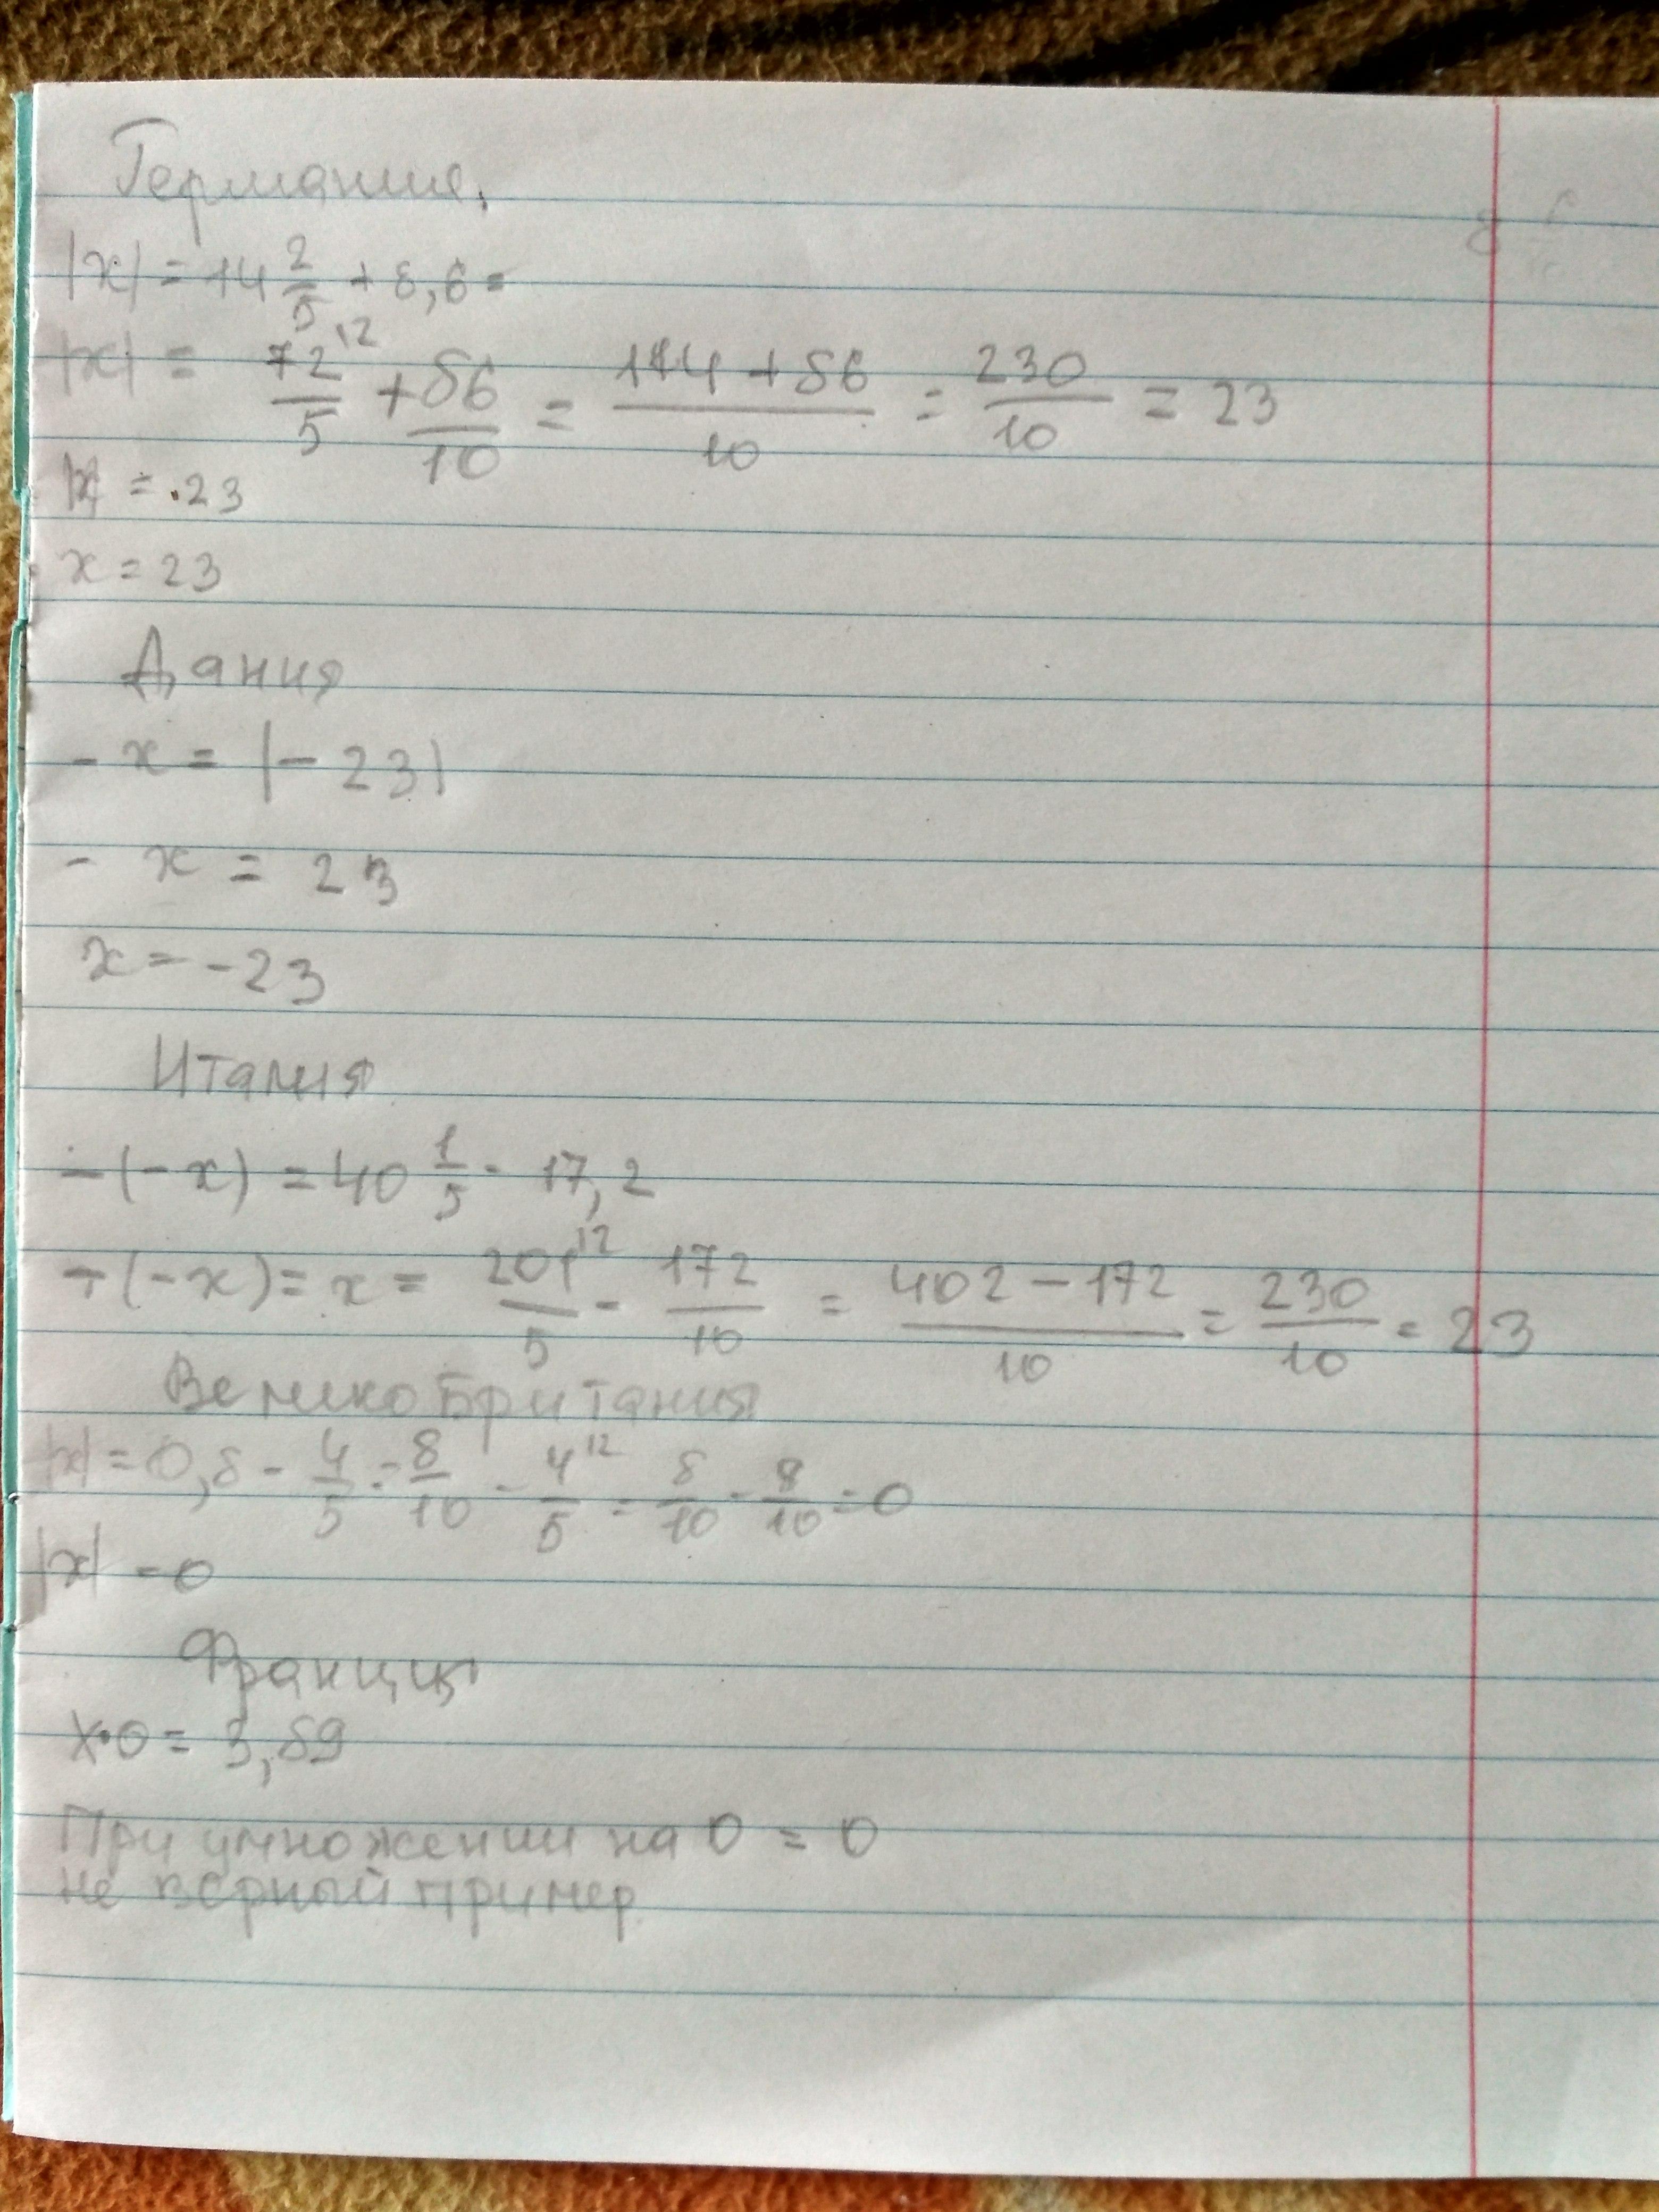 Германия.
|x| = 14 2/5 + 8,6 =
|x| = 72/5 ^12 + 86/10 = 144 + 86/10 = 230/10 = 23
|x| = 23
x = 23
Дания
- x = |- 23|
- x = 23
x = - 23
Италия
- (- x) = 40 1/5 - 17,2
- (- x) = x = 201/5 ^12 - 172/10 = 402 - 172/10 = 230/10 = 23
Великобритания
|x| = 0,8 - 4/5 = 8/10 - 4/5 ^12 = 8/10 - 8/10 = 0
|x| = 0
Франция
x·0 = 3,89
При умножении на 0 = 0
не верный пример